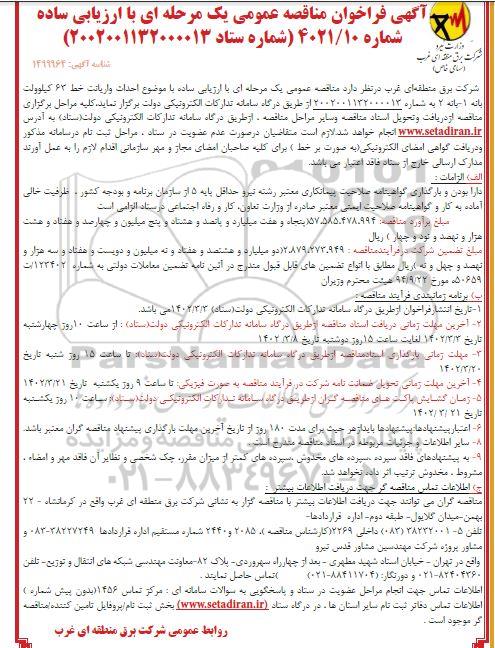 آگهی فراخوان مناقصه عمومی یک مرحله ای با ارزیابی ساده
شماره ۴۰۲۱/۱۰ (شماره ستاد ۲۰۰۲۰۰۱۱۳۲۰۰۰۰۱۳)
وزارت نیرو
شرکت برق منطقه ای غرب
(سهامی خاص)
شناسه آگهی: ۱۴۹۹۹۶۴
شرکت برق منطقه‌ای غرب درنظر دارد مناقصه عمومی یک مرحله ای با ارزیابی ساده با موضوع احداث واریانت خط ۶۳ کیلوولت
بانه ۱-بانه ۲ به شماره ۲۰۰۲۰۰۱۱۳۲۰۰۰۰۱۳ از طریق درگاه سامانه تدارکات الکترونیکی دولت برگزار نماید.کلیه مراحل برگزاری
مناقصه ازدریافت وتحویل اسناد مناقصه وسایر مراحل مناقصه ، ازطریق درگاه سامانه تدارکات الکترونیکی دولت(ستاد) به آدرس
www.setadiran.ir انجام خواهد شد.لازم است متقاضیان درصورت عدم عضویت در ستاد ، مراحل ثبت نام درسامانه مذکور
ودریافت گواهی امضای الکترونیکی(به صورت بر خط ) برای کلیه صاحبان امضای مجاز و مهر سازمانی اقدام لازم را به عمل آورند
مدارک ارسالی خارج از ستاد فاقد اعتبار می باشد.
الف) الزامات :
دارا بودن و بارگذاری گواهینامه صلاحیت پیمانکاری معتبر رشته نیرو حداقل پایه ۵ از سازمان برنامه و بودجه کشور ، ظرفیت خالی
آماده به کار و گواهینامه صلاحیت ایمنی معتبر صادره از وزارت تعاون، کار و رفاه اجتماعی درستاد الزامی است
مبلغ برآورد مناقصه: ۵۷.۵۸۵.۴۷۸.۹۹۴(پنجاه و هفت میلیارد و پانصد و هشتاد و پنج میلیون و چهارصد و هفتاد و هشت
هزار و نهصد و نود و چهار ) ریال
مبلغ تضمین شرکت درفرآیندمناقصه: ۲.۸۷۹.۲۷۳.۹۴۹(دو میلیارد و هشتصد و هفتاد و نه میلیون و دویست و هفتاد و سه هزار و
نهصد و چهل و نه )ریال مطابق با انواع تضمین های قابل قبول مندرج در آئین نامه تضمین معاملات دولتی به شماره ۱۲۳۴۰۲/ت
۵۰۶۵۹ه مورخ ۹۴/۹/۲۲ هیئت محترم وزیران
ب) برنامه زمانبندی فرآیند مناقصه :
۱-تاریخ انتشارفراخوان ازطریق درگاه سامانه تدارکات الکترونیکی دولت(ستاد) ۱۴۰۲/۳/۳می باشد.
۲- آخرین مهلت زمانی دریافت اسناد مناقصه ازطریق درگاه سامانه تدارکات الکترونیکی دولت(ستاد) : از ساعت ۱۰روز چهارشنبه
تاریخ ۱۴۰۲/۳/۳ لغایت ساعت ۱۵روز دوشنبه تاریخ ۱۴۰۲/۳/۸
۳- مهلت زمانی بارگذاری اسنادمناقصه ازطریق درگاه سامانه تدارکات الکترونیکی دولت(ستاد): تا ساعت ۱۵ روز شنبه تاریخ
۱۴۰۲/۳/۲۰
۴- آخرین مهلت زمانی تحویل ضمانت نامه شرکت در فرآیند مناقصه به صورت فیزیکی: تا ساعت ۹ روز یکشنبه تاریخ ۱۴۰۲/۳/۲۱
۵- زمان گشایش پاکت های مناقصه گران ازطریق درگاه سامانه تدارکات الکترونیکی دولت(ستاد): ساعت ۱۰ روز یکشنبه
تاریخ ۱۴۰۲/۳/۲۱
۶- اعتبارپیشنهادها:پیشنهادها بایدازهر حیث برای مدت ۱۸۰ روز از تاریخ آخرین مهلت بارگذاری پیشنهاد مناقصه گران معتبر باشد.
۸- سایر اطلاعات و جزئیات مربوطه در اسناد مناقصه مندرج است.
۹- به پیشنهادهای فاقد سپرده ،سپرده های مخدوش ،سپرده های کمتر از میزان مقرر، چک شخصی و نظایر آن فاقد مهر و امضاء ،
مشروط ، مخدوش ترتیب اثر داده نخواهد شد.
ج) اطلاعات تماس مناقصه گر جهت دریافت اطلاعات بیشتر :
مناقصه گران می توانند جهت دریافت اطلاعات بیشتر با مناقصه گزار به نشانی شرکت برق منطقه ای غرب واقع در کرمانشاه - ۲۲
بهمن-میدان گلایول- طبقه دوم-اداره قراردادها-
تلفن ۵- ۳۸۲۳۲۰۰۱ (۰۸۳) داخلی ۲۲۶۹(کارشناس مناقصه )، ۲۰۸۵ و ۲۴۴۰ شماره مستقیم اداره قراردادها ۳۸۲۲۷۲۴۹-۰۸۳ و
مشاور پروژه شرکت مهندسین مشاور قدس نیرو
واقع در تهران - خیابان استاد شهید مطهری - بعد از چهارراه سهروردی- پلاک ۸۲-معاونت مهندسی شبکه های انتقال و توزیع- تلفن
۸۲۴۰۴۳۶۰-۰۲۱ و دورنگار: (۸۸۴۱۱۷۰۴-۰۲۱ )تماس حاصل نمایند .
اطلاعات تماس جهت انجام مراحل عضویت در ستاد و پاسخگویی به سوالات سامانه ای : مرکز تماس ۱۴۵۶(بدون پیش شماره )
اطلاعات تماس دفاتر ثبت نام سایر استان ها ، در درگاه ستاد (www.setadiran.ir) بخش ثبت نام/پروفایل تامین کننده/مناقصه
گر موجود است .
روابط عمومی شرکت برق منطقه ای غرب